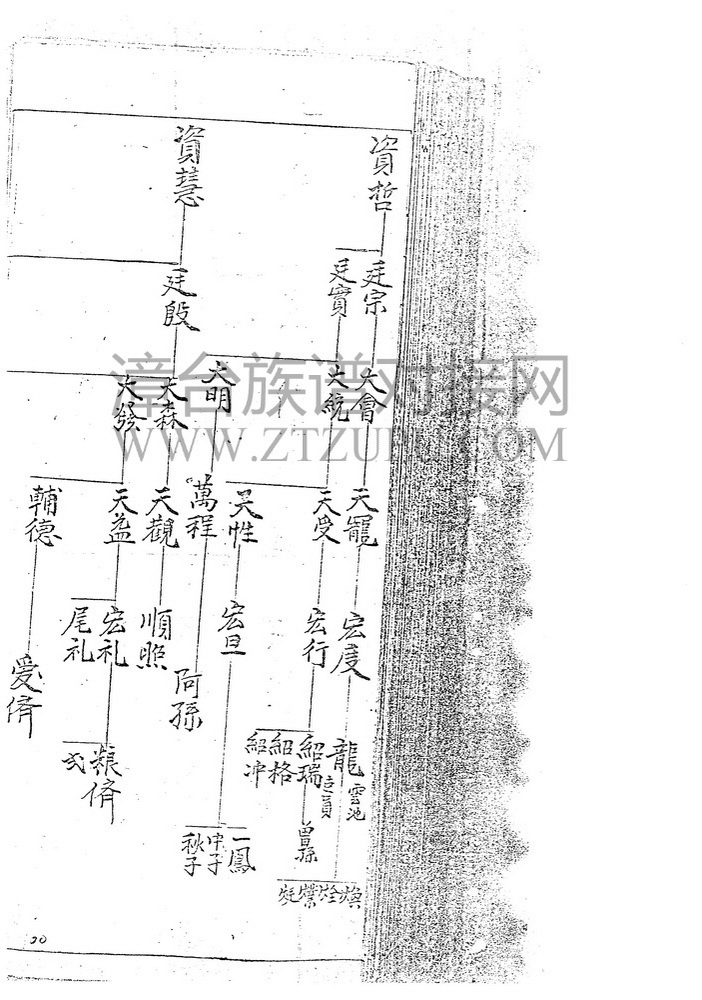 資哲
資慧
廷宗
廷實
廷殷
大會
大統
大明
大森
大發
漳台族谱对接网
WWW.ZTZUPU.COM
天寵
天受
天性
萬程
天觀
天益
輔德
宏度
宏行
宏旦
阿孫
順照
宏礼
尾礼
愛儕
龍
雲池
紹瑞
紹格
紹冲
曾孫
粮儕
一鳳
中子
秋子
煥
20